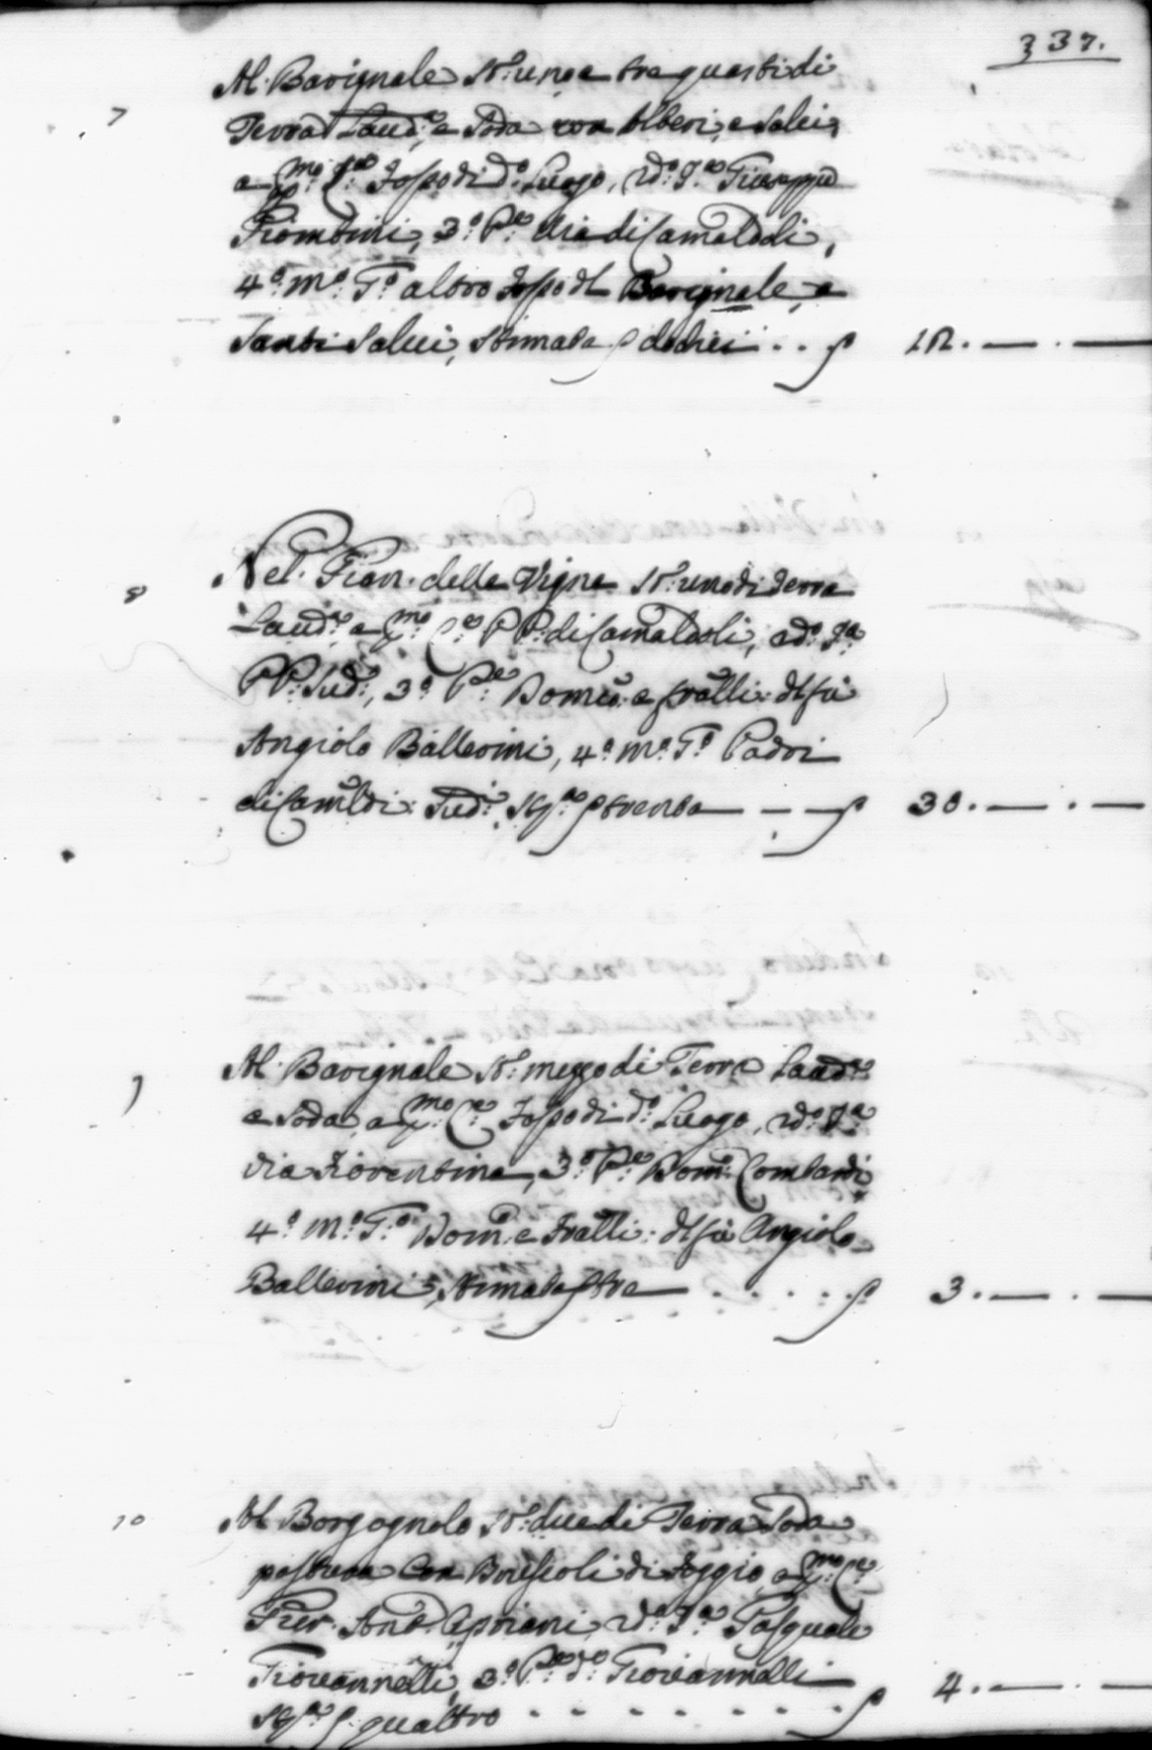 337.
7 Al Barignale St: uno e tre quarti di
Terra Laud:ª e Soda con Alberi, e Salci,
a p:mo C:º Fosso di d:º Luogo, 2d:º J:ª Giuseppe
Piombini, 3:º P:e Via di Camaldoli,
4:º m:º G:º altro Fosso del Barignale, e
Santi Salci, Stimata p dodici . . . 12. — . —
8 Nel Pian. delle Vigne St: uno di terra
Laud:ª a p:mo C:º PP: di Camaldoli, 2d:º J:ª
PP: Sud:i, 3:º P:e Dom:co e fratelli: del fù
Angiolo Ballerini, 4:º m:º G:º Padri
di Camldi: Sud:i p trenta — — 30. — . —
9 Al Barignale St: mezzo di Terra Laud:ª
e Soda, a p:mo C:º Fosso di d:º Luogo, 2d:º J:ª
Via Fiorentina, 3:º P:e Dom:co Lombardi
4:º m:º G:º Dom:co e Fratelli: del fù Angiolo
Ballerini, Stimata p tre — . . . . . 3. — . —
10 Al Borgognolo St: due di Terra Soda
pastura con di Faggio, a p:mo C:º
Pier. Ant:º Cipriani, 2d:º J:ª Pasquale
Giovannelli, 3:º P:e d:º Giovannelli
p quattro . . . . . . . 4. — . —